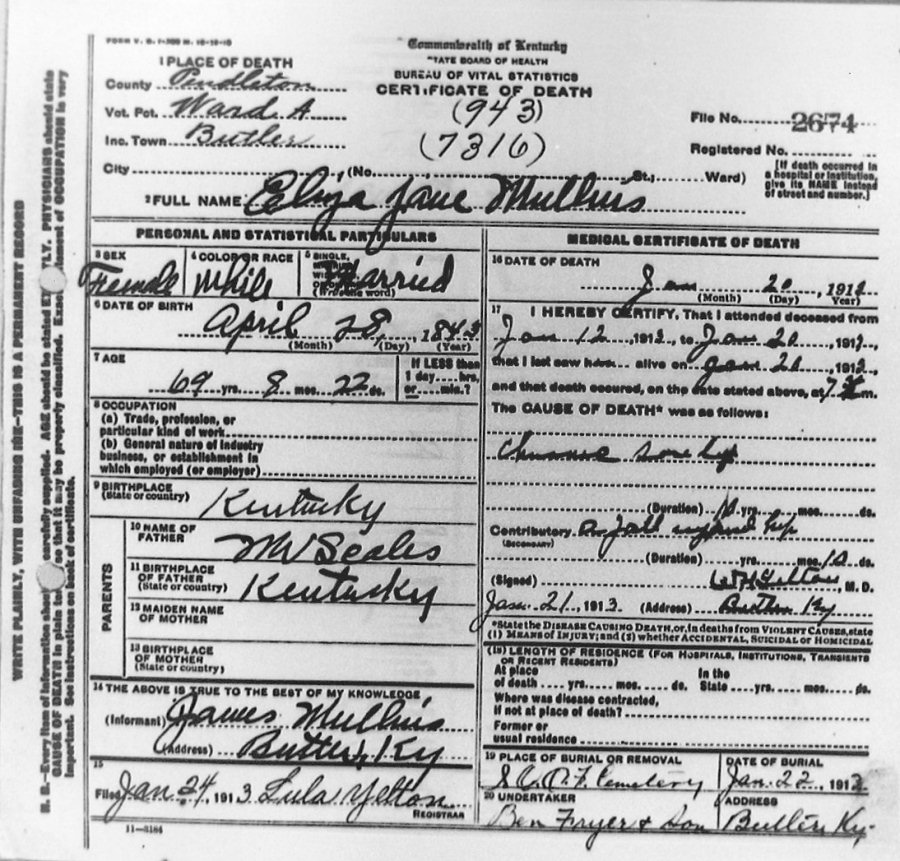 FORM V. S. 1-200 M. 10-19-10
Commonwealth of Kentucky
STATE BOARD OF HEALTH
BUREAU OF VITAL STATISTICS
CERTIFICATE OF DEATH
1 PLACE OF DEATH
County Pendleton
Vot. Pct. Ward A
Inc. Town Butler
City (No. St.; Ward)
(943)
(7316)
File No. 2674
Registered No.
[If death occurred in
a hospital or institution,
give its NAME instead
of street and number.]
2 FULL NAME Eliza Jane Mullins
PERSONAL AND STATISTICAL PARTICULARS
3 SEX
Female
4 COLOR OR RACE
White
5 SINGLE,
Married
(Write the word)
6 DATE OF BIRTH
April 28, 1843
(Month) (Day) (Year)
7 AGE
69 yrs. 8 mos. 22 ds.
If LESS than
1 day hrs.
or min.?
8 OCCUPATION
(a) Trade, profession, or
particular kind of work
(b) General nature of industry
business, or establishment in
which employed (or employer)
9 BIRTHPLACE
(State or country)
Kentucky
PARENTS
10 NAME OF
FATHER
Scales
11 BIRTHPLACE
OF FATHER
(State or country)
Kentucky
12 MAIDEN NAME
OF MOTHER
13 BIRTHPLACE
OF MOTHER
(State or country)
14 THE ABOVE IS TRUE TO THE BEST OF MY KNOWLEDGE
(Informant) James Mullins
(Address) Butler, Ky
15
Filed Jan. 24, 1913. Lula Yelton
REGISTRAR
11-3184
MEDICAL CERTIFICATE OF DEATH
16 DATE OF DEATH
Jan 20, 1913
(Month) (Day) (Year)
17
I HEREBY CERTIFY, That I attended deceased from
Jan 12 1913, to Jan 20, 1913,
that I last saw h alive on Jan 20, 1913,
and that death occured, on the date stated above, at 7 m.
The CAUSE OF DEATH* was as follows:
sore hip
(Duration) 10 yrs. mos. ds.
Contributory a fall injured hip
(SECONDARY)
(Duration) yrs. mos. 10 ds.
(Signed) Yelton, M. D.
Jan. 21, 1913. (Address) Butler Ky
*State the DISEASE CAUSING DEATH, or, in deaths from VIOLENT CAUSES, state
(1) MEANS OF INJURY; and (2) whether ACCIDENTAL, SUICIDAL or HOMICIDAL
(18) LENGTH OF RESIDENCE (FOR HOSPITALS, INSTITUTIONS, TRANSIENTS
OR RECENT RESIDENTS)
At place
of death yrs. mos. ds.
In the
State yrs. mos. ds.
Where was disease contracted,
if not at place of death?
Former or
usual residence
19 PLACE OF BURIAL OR REMOVAL
I.O.O.F. Cemetery
DATE OF BURIAL
Jan. 22, 1913
20 UNDERTAKER
Ben Fryer & Son
ADDRESS
Butler Ky.
WRITE PLAINLY, WITH UNFADING INK—THIS IS A PERMANENT RECORD
N. B.—Every item of information should carefully supplied. AGE should be stated PHYSICIANS should state
CAUSE OF DEATH in plain so that it may be properly classified. Exact statement of OCCUPATION is very
important. See instructions on back of certificate.